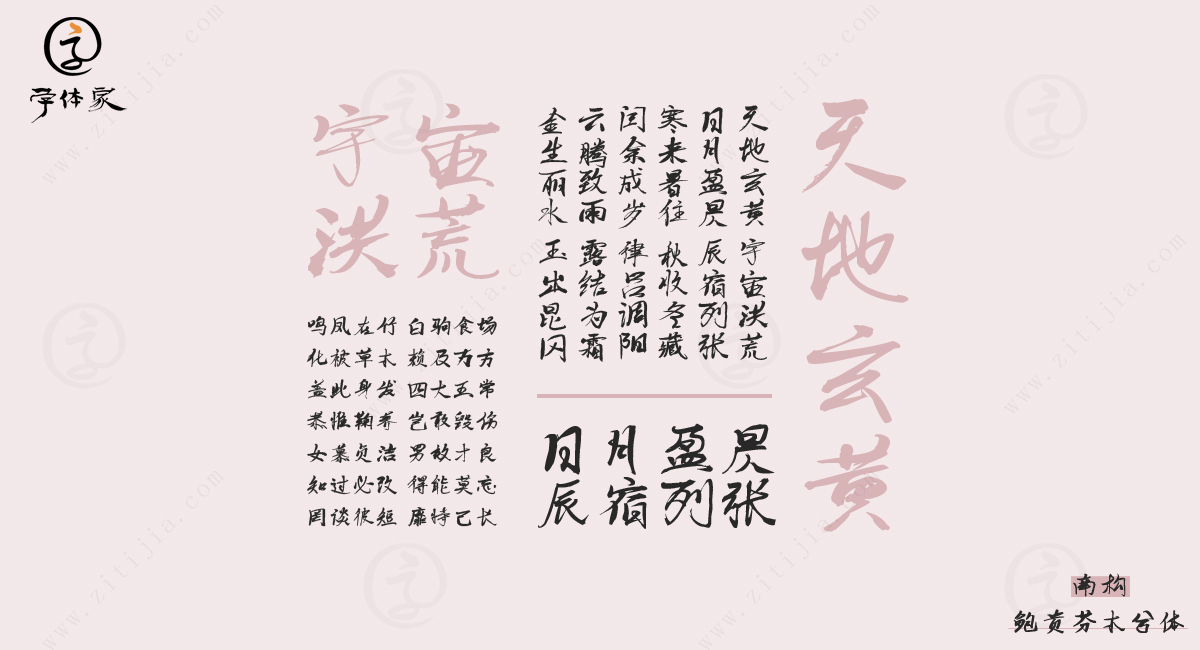 字体家
宇宙
洪荒
天地玄黄
天地玄黄 宇宙洪荒
日月盈昃 辰宿列张
寒来暑往 秋收冬藏
闰余成岁 律吕调阳
云腾致雨 露结为霜
金生丽水 玉出昆冈
鸣凤在竹 白驹食场
化被草木 赖及万方
盖此身发 四大五常
恭惟鞠养 岂敢毁伤
女慕贞洁 男效才良
知过必改 得能莫忘
罔谈彼短 靡恃己长
日月盈昃
辰宿列张
南构
鲍黄芬木兮体
www.zitijia.com